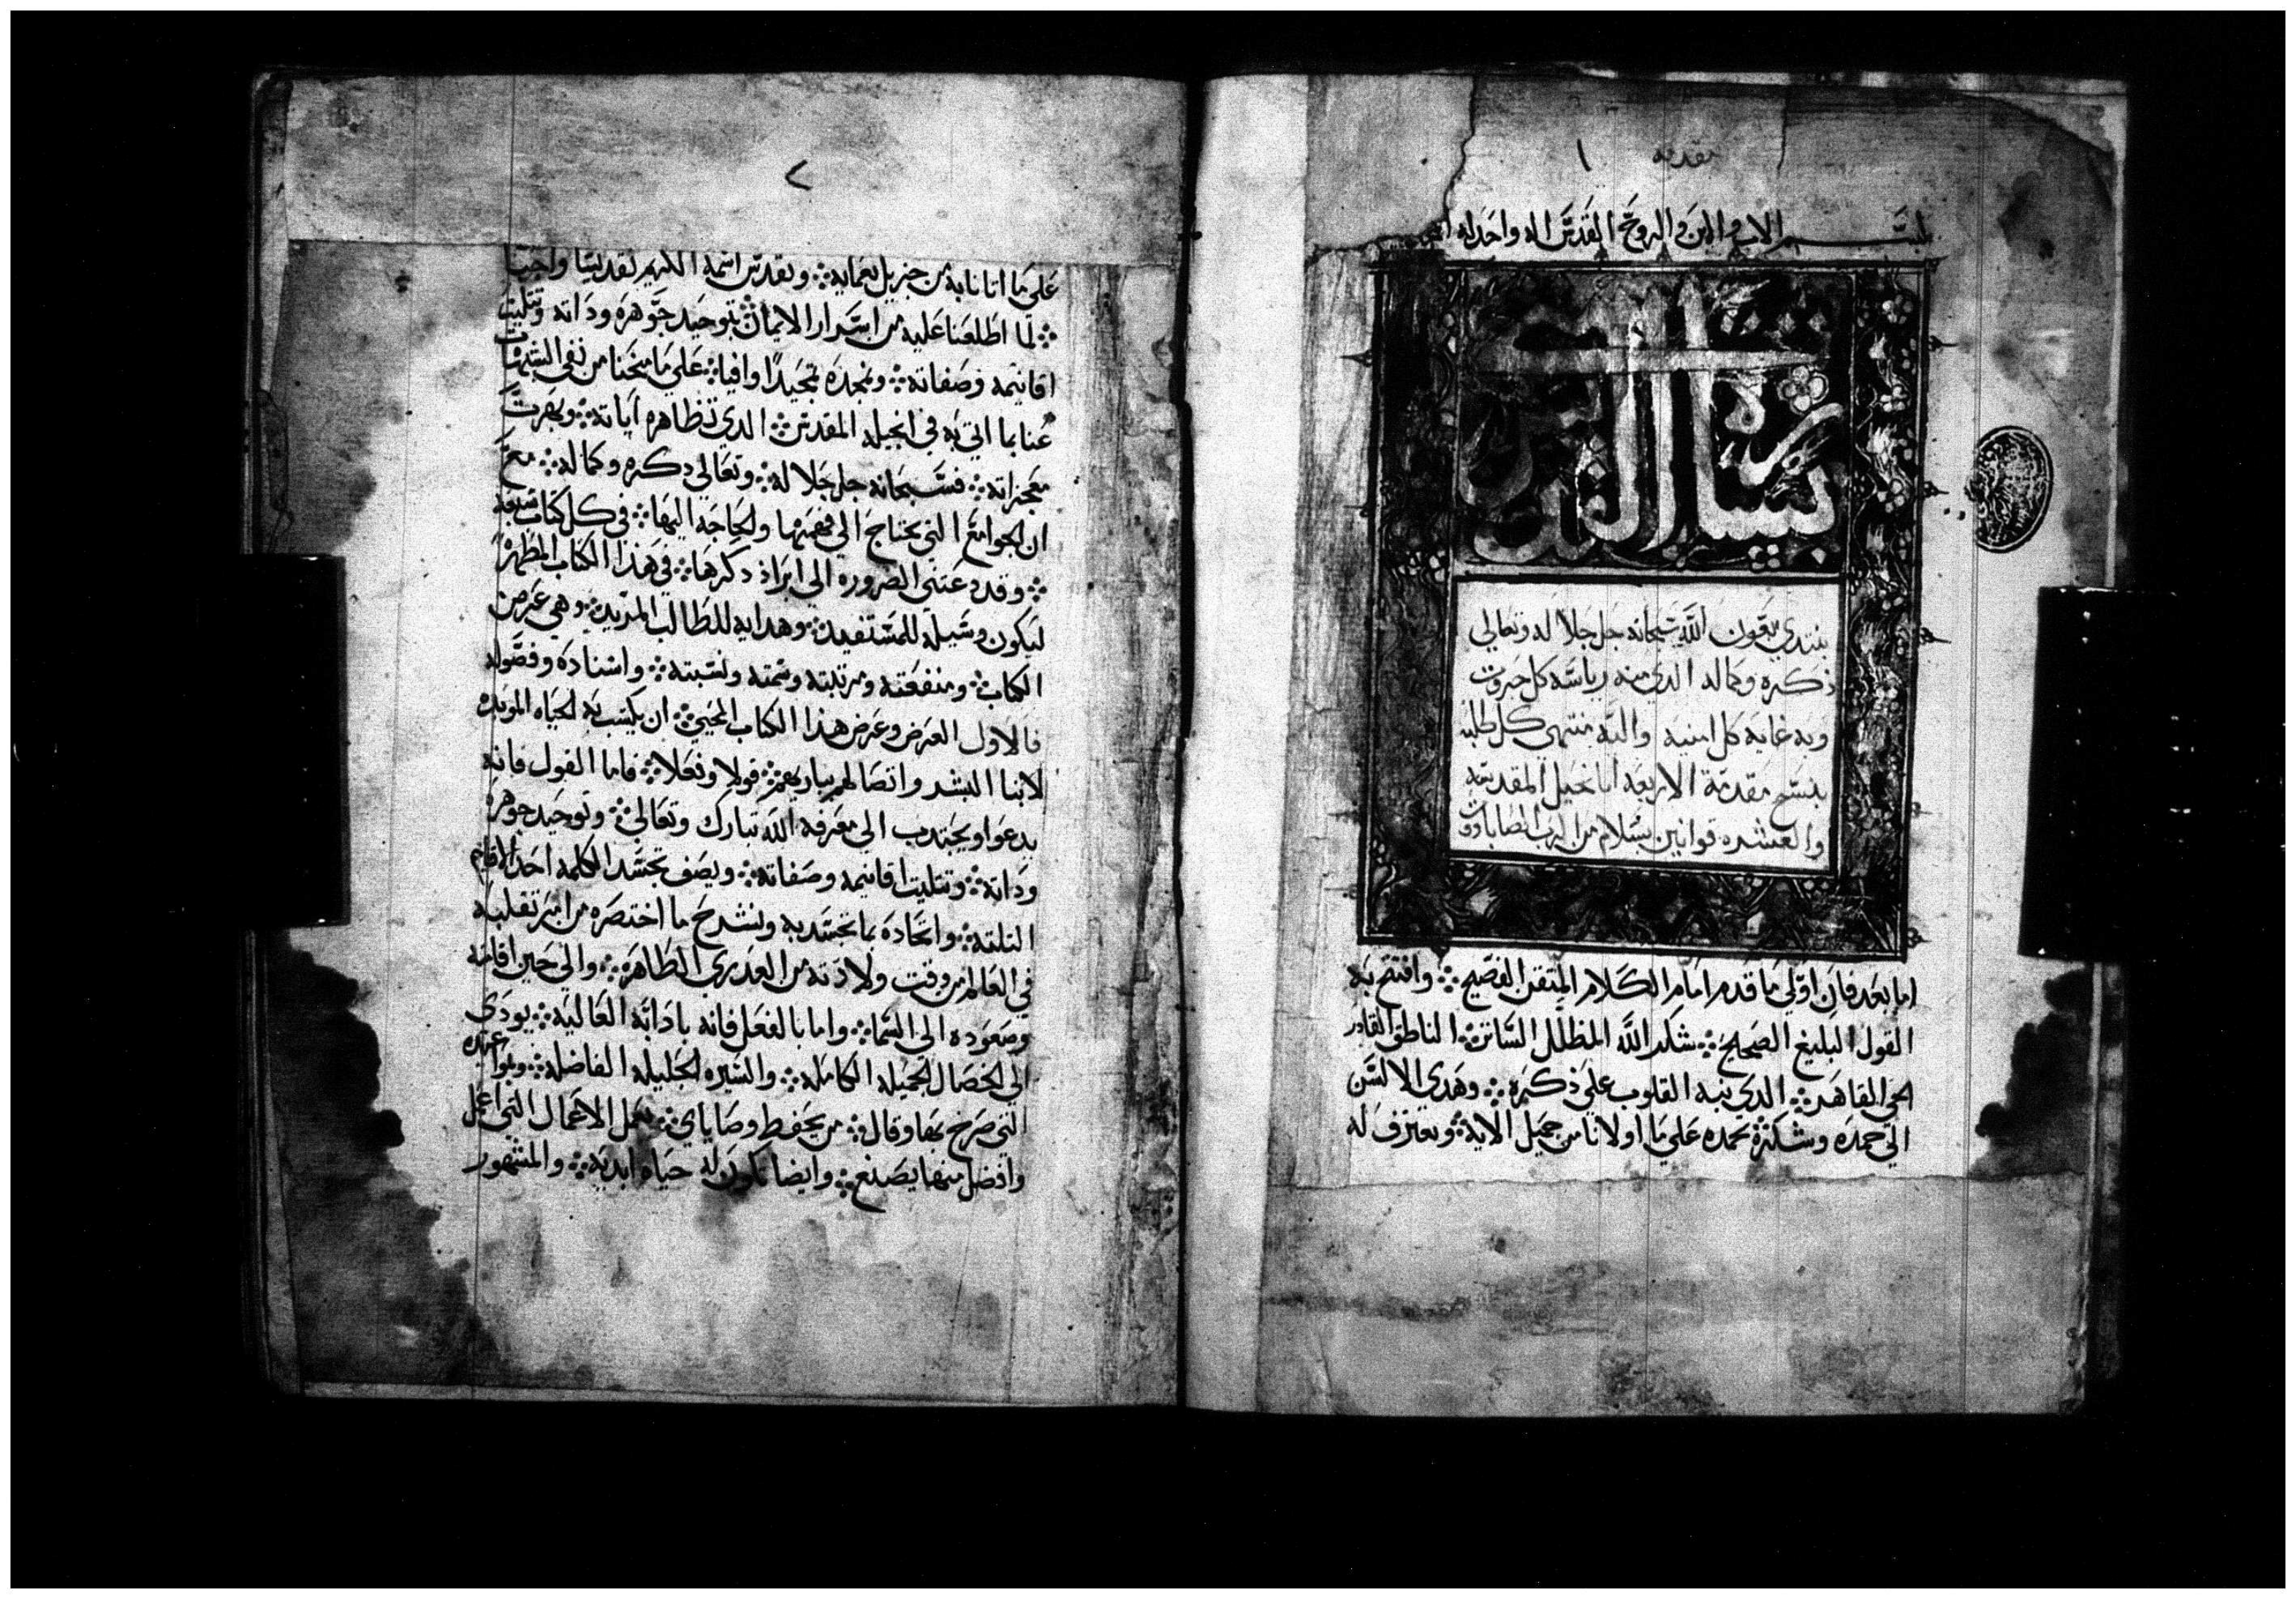 مقدمه ١
بسم الاب والابن والروح القدس اله واحد له
بسم الله
القدوس
نبتدي بعون الله سبحانه جل جلاله وتعالي
ذكره وكماله الذي منه رياسه كل جبروت
وبه غاية كل امنيه واليه منتهي كل طلبه
بنسخ مقدمة الاربعه اناجيل المقدسه
والعشره قوانين بسلام من الرب الضاباووت
اما بعد فان اولي ما قدم امام الكلام المتقن الفصيح ⁘ وافتتح به
القول البليغ الصحيح ⁘ شكر الله المظلل الساتر ⁘ الناطق القادر
الحي القاهر ⁘ الدي نبه القلوب علي ذكره ⁘ وهدي الالسن
الي حمده وشكره ⁘ نحمده علي ما اولانا من جميل الايه ⁘ ونعترف له
٢
علي ما انانا به من جزيل نعمايه ⁘ ونقدس اسمه الكريم تقديسا واجبا
⁘ لما اطلعنا عليه من اسرار الايمان ⁘ بتوحيد جوهره وداته وتتليت
اقانيمه وصفاته ⁘ ونمجده تمجيدًا وافيا ⁘ علي ما منحنا من نفي الشبهات
عنا بما اتي به في انجيله المقدس ⁘ الدي تظاهره اياته ⁘ وبهرت
معجزاته ⁘ فسبحانه جل جلاله ⁘ وتعالي دكره وكماله ⁘ مع
ان الجوامع التي يحتاج الي فهمها والحاجه اليها ⁘ في كل كتاب سبعه
⁘ وقد دعتني الضروره الي ابراز دكرها ⁘ في هذا الكتاب المطهر
ليكون وسيله للمستفيد ⁘ وهدايه للطالب المريد ⁘ وهي غرض
الكتاب ⁘ ومنفعته ومرتبته وسمته ونسبته ⁘ واسناده وفصوله
فالاول الغرض وغرض هذا الكتاب المحيي ⁘ ان يكسب به الحياه الموبده
لابنا البشر واتصالهم بباريهم ⁘ قولا وفعلا ⁘ فاما القول فانه
يدعوا ويجتدب الي معرفه الله تبارك وتعالي ⁘ وتوحيد جوهره
وداته ⁘ وتتليت اقانيمه وصفاته ⁘ ويصف تجسد الكلمه احد الاقانيم
التلته ⁘ واتحاده بما تجسد به ونشرح ما اختصره من امر تقلبه
في العالم من وقت ولادته من العدري الطاهره ⁘ والي حين اقامته
وصعوده الي السما ⁘ واما بالفعل فانه بادابه العاليه ⁘ يودي
الي الخصال الجميله الكامله ⁘ والسيره الجليله الفاضله ⁘ ومواعيده
التي صرح بها وقال ⁘ من يحفط وصاياي ⁘ يعمل الاعمال التي اعمل
وافضل منها يصنع ⁘ وايضا تكون له حياه ابديه ⁘ والمشهور